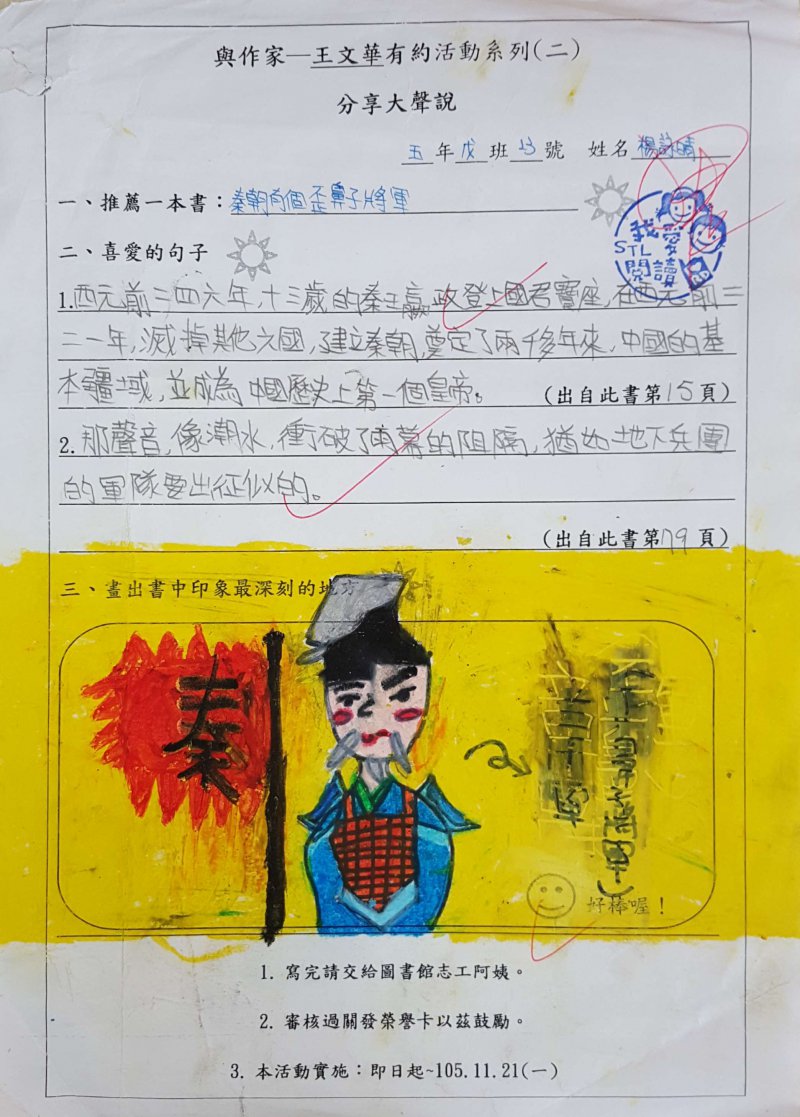 與作家—王文華有約活動系列(二)
分享大聲說
五年戊班13號 姓名楊詠晴
一、推薦一本書：秦朝有個歪鼻子將軍
二、喜愛的句子
我愛
STL
閱讀
1.西元前二四六年,十三歲的秦王嬴政登上國君寶座,在西元前二
二一年,滅掉其他六國,建立秦朝,奠定了兩千多年來,中國的基
本疆域,並成為中國歷史上第一個皇帝。(出自此書第15頁)
2.那聲音,像潮水,衝破了雨幕的阻隔,猶如地下兵團
的軍隊要出征似的。
(出自此書第79頁)
三、畫出書中印象最深刻的地方
秦
歪鼻子將軍)
好棒喔！
1. 寫完請交給圖書館志工阿姨。
2. 審核過關發榮譽卡以茲鼓勵。
3. 本活動實施：即日起~105.11.21(一)